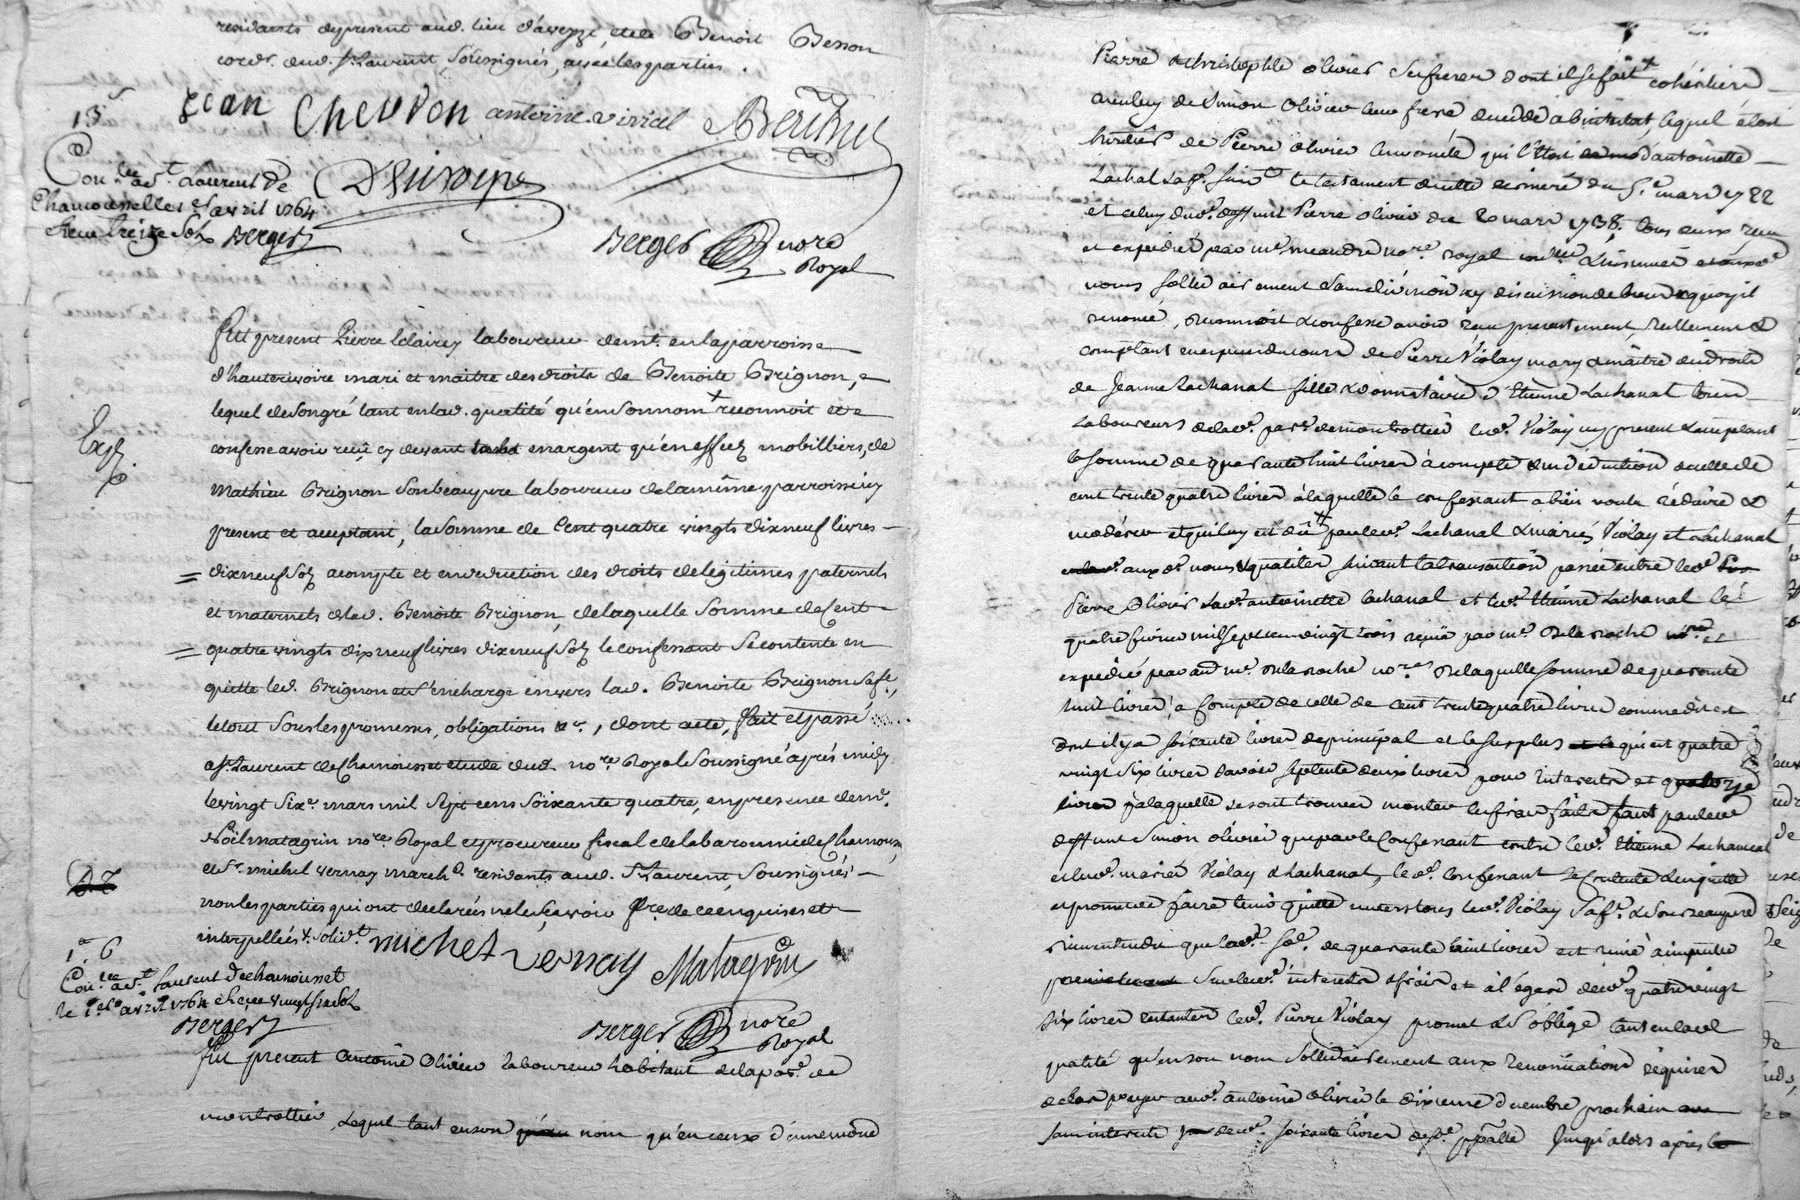 residants depresent aud. lieu d'aveyze, et de Benoit Besson
cord. aud. St Laurent, Soussignés, avec les parties.
13s
jean Chevron antoine vivial Berthet
Con.lle a St Laurent de
Chamousselles avril 1764
Reçu treize sols Berger
Berger nore
Royal
Fut present Pierre laboureur demt. en la parroisse
d'hauterivoire mari et maitre des droits de Benoite Brignon,
lequel de son gré tant en lad. qualité qu'en son nom + reconnoit et
Exp.
confesse avoir reçû cy devant tant en argent qu'en effets mobilliers, de
Mathieu Brignon son beaupere laboureur de la même parroisse icy
present et acceptant, la somme de Cent quatre vingts dix neuf livres
dix neuf sols acompte et en deduction des droits de legitimes paternels
et maternels de lad. Benoite Brignon, de laquelle somme de Cent
quatre vingts dix neuf livres dix neuf sols le confessant se contente en
quitte led. Brignon et s'encharge envers lad. Benoite Brignon sa fe.,
le tout sous les promesses, obligations &c., dont acte, fait et passé
a St Laurent de Chamousset etude dud. nore Royal soussigné après midy
le vingt six. mars mil sept cens soixante quatre, en presence de me.
Noël matagrin nore Royal et procureur fiscal de la baronnie de Chamousset,
et Sr michel vernay march.d residants aud. St Laurent, Soussignés
non les parties qui ont declarés ne le sçavoir fre de ce enquises et
interpellées & solidt. michel vernay Matagrin
1 " 6
Con. a St Laurent de chamousset
le avril 1764 Reçu vingt six sols
Berger
Berger nore
Royal
Fut present antoine Olivier laboureur habitant de la par. de
montrottier, Lequel tant en son nom qu'en ceux d'ennemond
Pierre & christophle olivier ses freres dont il se fait + cohéritiers
avec luy de Simon Olivier leur frere decedé abintestat, lequel étoit
heritier de Pierre olivier qui l'étoit d'antoinette
Lachal sa fe. suivt. le testament de cette derniere du 5e mars 1722
et celuy dud. deffunt Pierre olivier du 20 mars 1738. tous deux reçu
et expediés par me. meandre nore. royal & insinués
noms sollidairement sans division ny discussion de biens a quoy il
renonce, reconnoit & confesse avoir reçu presentement, reellement &
comptant en especes du cours de Pierre Violay mary & maitre des droits
de Jeanne Lachanal fille & donnataire d'Etienne Lachanal tous
Laboureurs de lad. par. de montrottier led. Violay icy present & acceptant
la somme de quarante huit livres à compte & en deduction de celle de
cent trente quatre livres à laquelle le confessant a bien voulu réduire &
moderer et qui luy est dû + par led. Lachanal & mariés Violay et Lachanal
aux d. noms & qualités suivant la transaction passée entre led.
Pierre Olivier Lad. antoinette lachanal et led. Etienne Lachanal le
quatre fevrier mil sept cent vingt trois reçue par me. Delaroche et
expédié par aud. me. Delaroche nore. De laquelle somme de quarante
huit livres, a Compte de celle de cent trente quatre livres comme dit est
dont il y a soixante livres de principal et le surplus qui est quatre
vingt six livres savoir septente deux livres pour interests et quatorze
livres a laquelle se sont trouvés monter les frais faits tant par led.
deffunt Simon olivier que par le Confessant contre led. Etienne Lachanal
et led. mariés Violay & Lachanal, led. Confessant se contente & en quitte
et promet en faire tenir quitte envers tous led. Violay sa fe. & son beaupere
bien entendu que lad. se. de quarante huit livres est
sur led. interests & frais et à l'égard desd. quatre vingt
six livres restantes led. Pierre Violay promet & s'oblige tant en lad.
qualité qu'en son nom sollidairement aux renonciations requises
de les payer aud. antoine Olivier le dixieme decembre prochain
sans interests desd. soixante livres de se. pplle Jusqu'alors apres